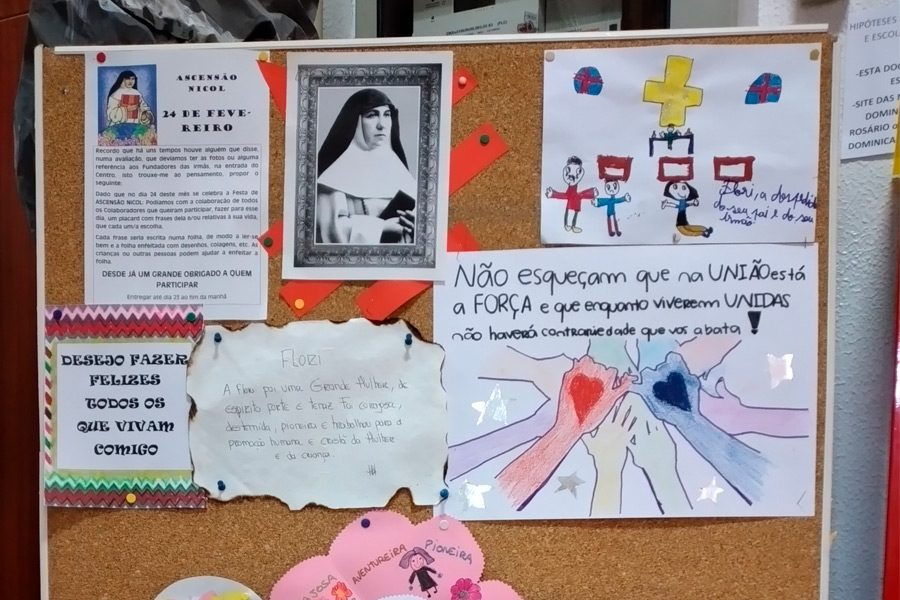 ASCENSÃO
NICOL
24 DE FEVE-
REIRO
Recordo que há uns tempos houve alguém que disse,
numa avaliação, que devíamos ter as fotos ou alguma
referência aos Fundadores das irmãs, na entrada do
Centro. Isto trouxe-me ao pensamento, propor o
seguinte:
Dado que no dia 24 deste mês se celebra a Festa de
ASCENSÃO NICOL: Podíamos com a colaboração de todos
os Colaboradores que queiram participar, fazer para esse
dia, um placard com frases dela e/ou relativas à sua vida,
que cada um/a escolha.
Cada frase seria escrita numa folha, de modo a ler-se
bem e a folha enfeitada com desenhos, colagens, etc. As
crianças ou outras pessoas podem ajudar à enfeitar a
folha.
DESDE JÁ UM GRANDE OBRIGADO A QUEM
PARTICIPAR
Entregar até dia 23 ao fim da manhã
Flori, a despedir
do seu pai e do seu
irmão
Não esqueçam que na UNIÃO está
a FORÇA e que enquanto viverem UNIDAS
não haverá contrariedade que vos abata !
DESEJO FAZER
FELIZES
TODOS OS
QUE VIVAM
COMIGO
FLORI
A Flori foi uma Grande Mulher, de
espírito forte e tenaz. Foi corajosa,
destemida, pioneira e trabalhou para a
promoção humana e cristã da Mulher
e da criança.
AJOSA
AVENTUREIRA
PIONEIRA
HIPÓTESES
E ESCOL
-ESTA DO
ES
-SITE DAS
DOMIN
ROSÁRIO
DOMINICA